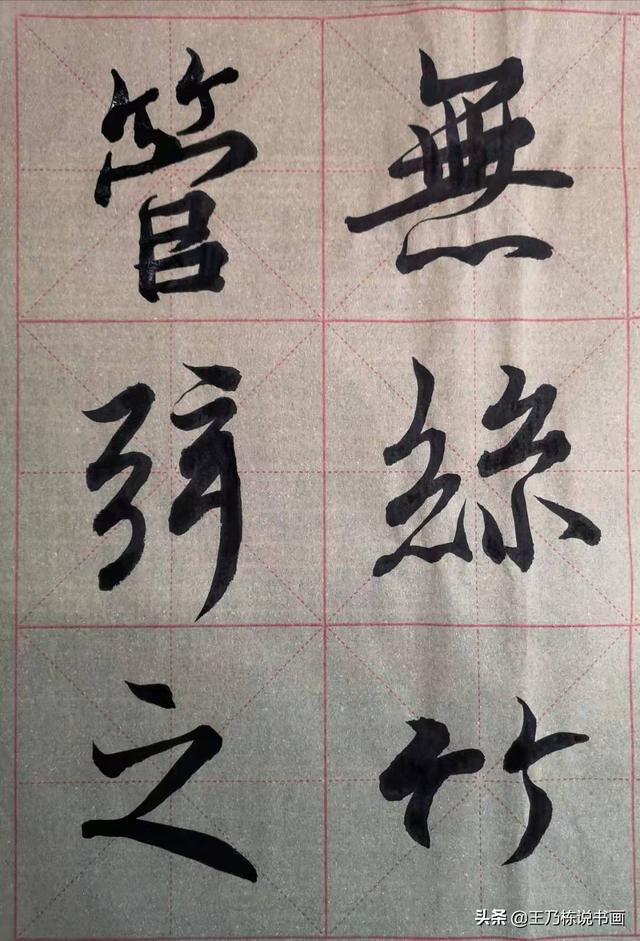 無絲竹
管弦之
头条 @王乃栋说书画